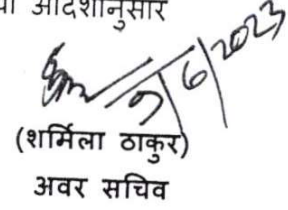 आदेशानुसार
9/6/2023
(शर्मिला ठाकुर)
अवर सचिव